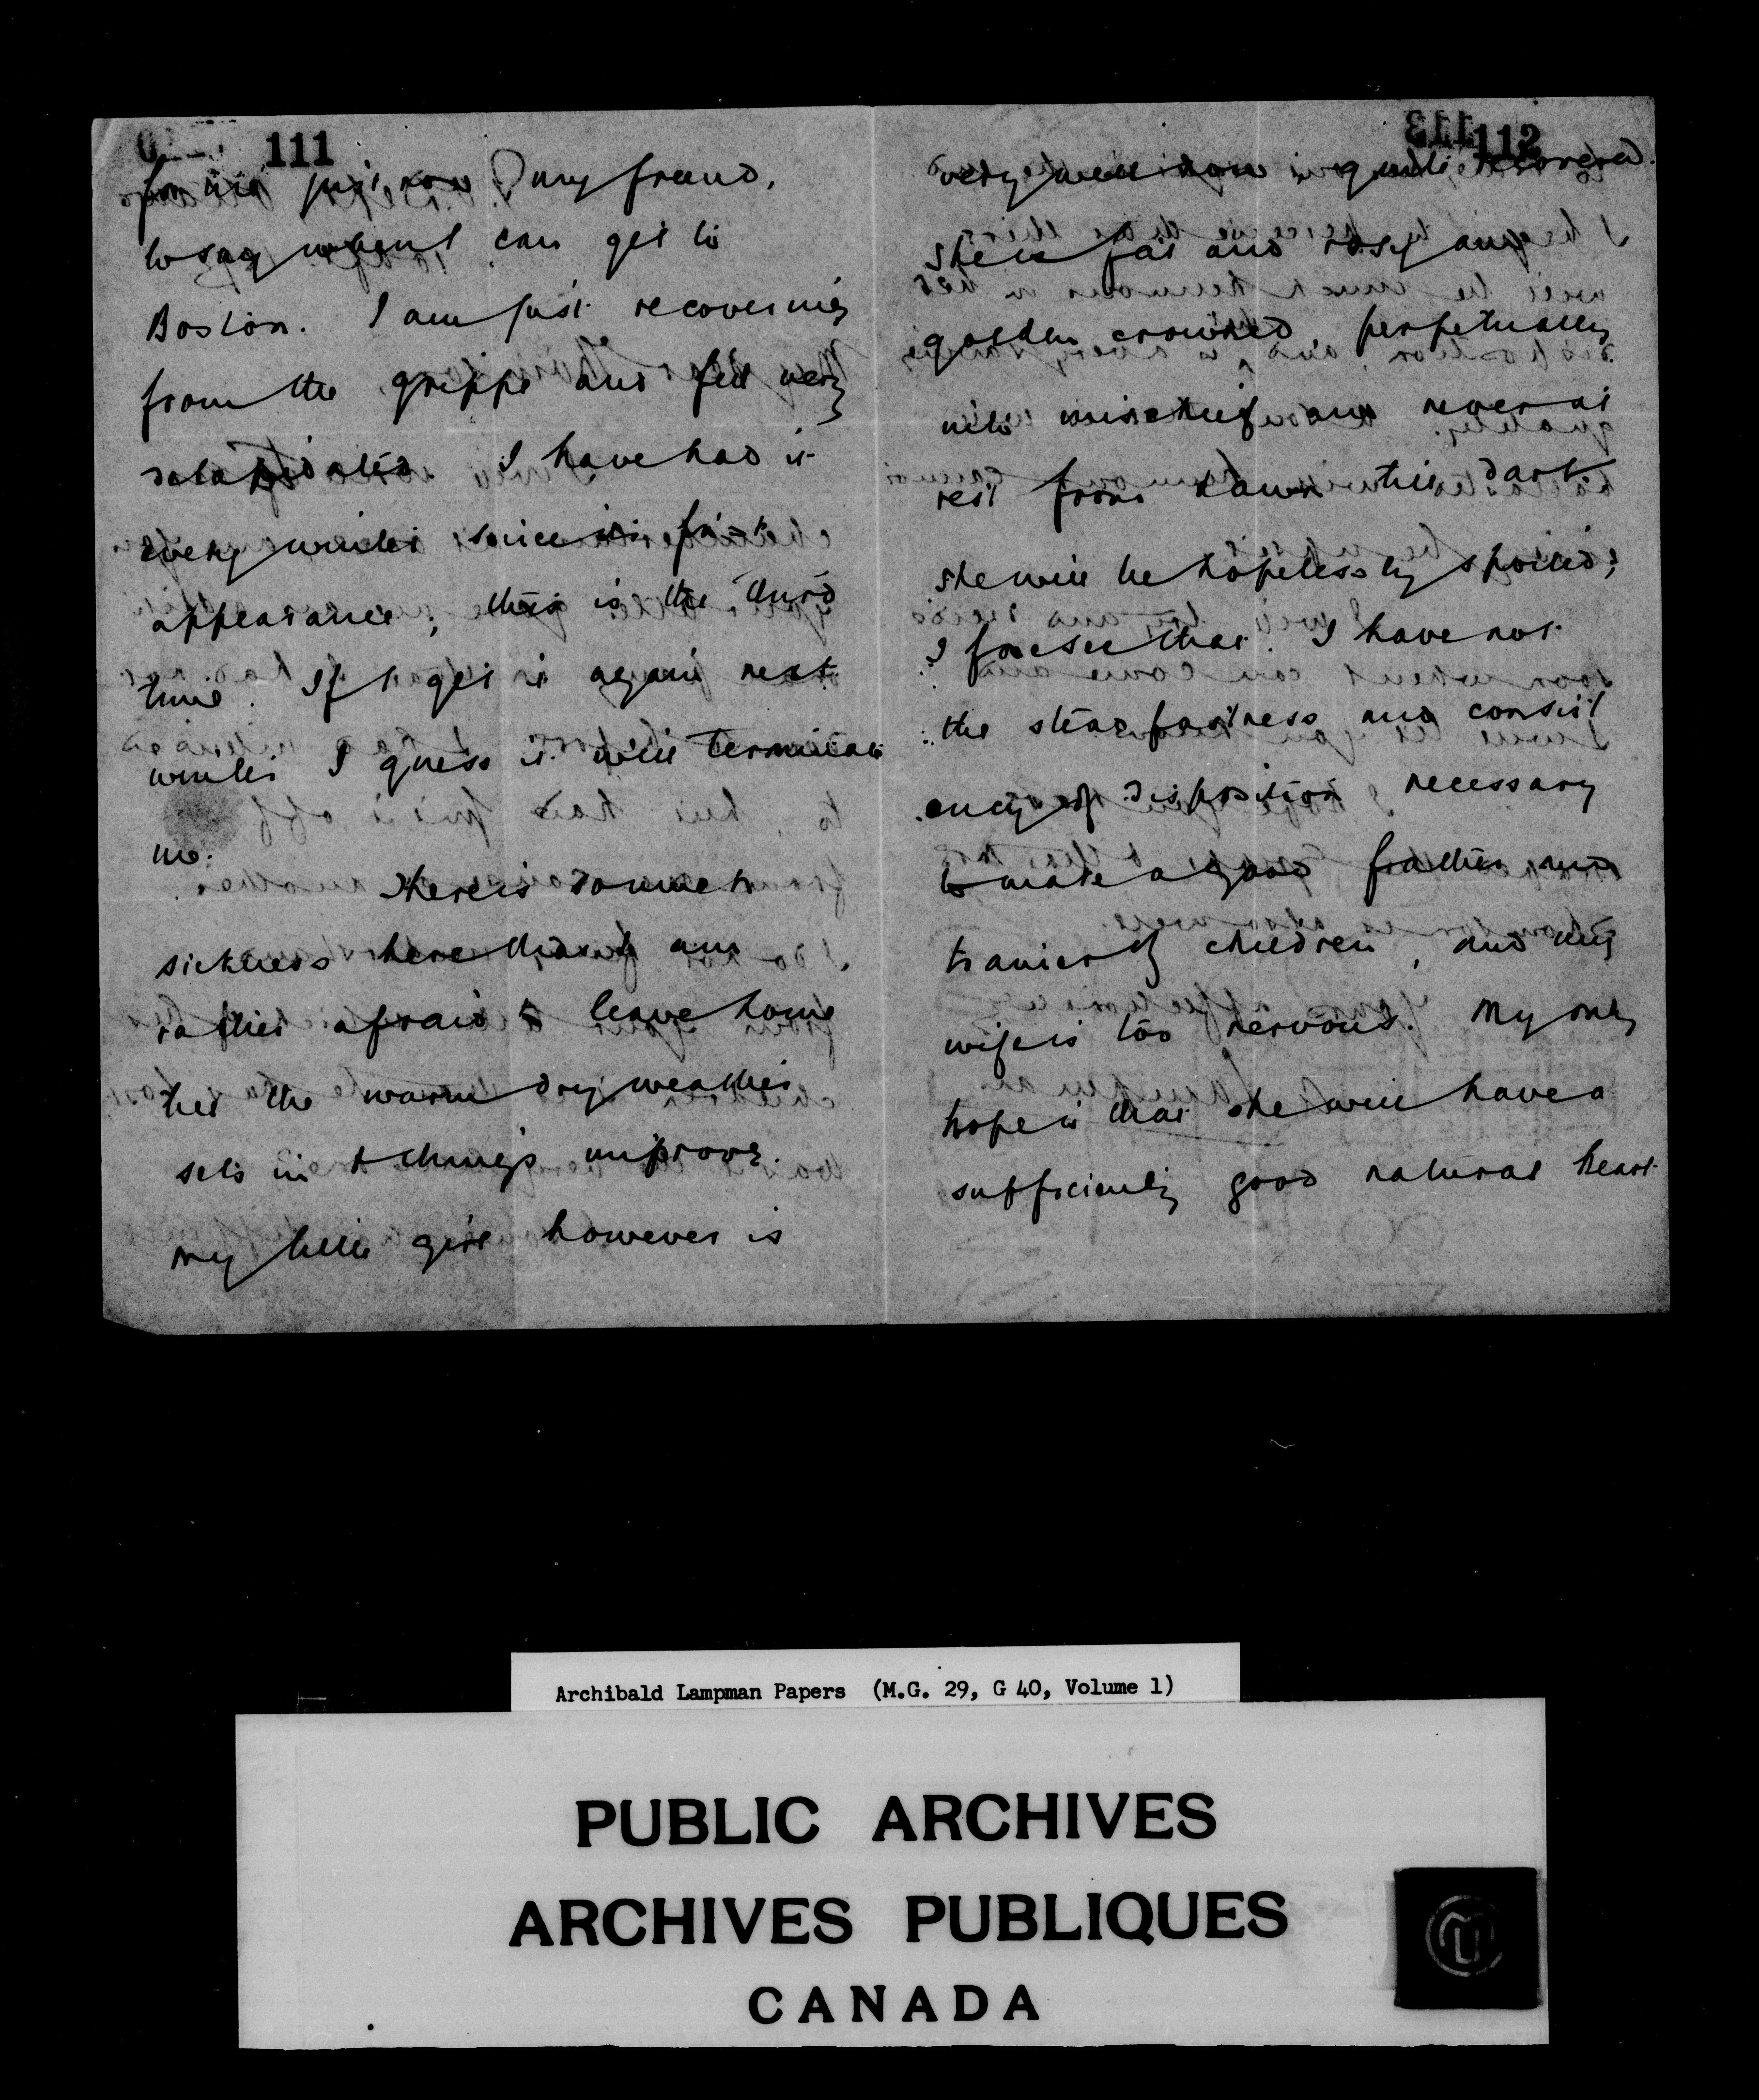 111
for me just now, my friend,
to say when I can get to
Boston. I am just recovering
from the grippe and feel very
dilapidated. I have had it
every winter since its first
appearance; this is the third
time. If I get it again next
winter I guess it will terminate
me.
There is so much
sickness here that I am
rather afraid to leave home
till the warm dry weather
sets in & things improve.
My little girl however is
112
very well now & quite recovered.
She is fat and rosy and
golden crowned, perpetually
into mischief and never at
rest from dawn till dark.
She will be hopelessly spoiled;
I foresee that. I have not
the steadfastness and consist
ency of disposition necessary
to make a good father and
trainer of children, and my
wife is too nervous. My only
hope is that she will have a
sufficiently good natural heart
Archibald Lampman Papers (M.G. 29, G 40, Volume 1)
PUBLIC ARCHIVES
ARCHIVES PUBLIQUES
CANADA